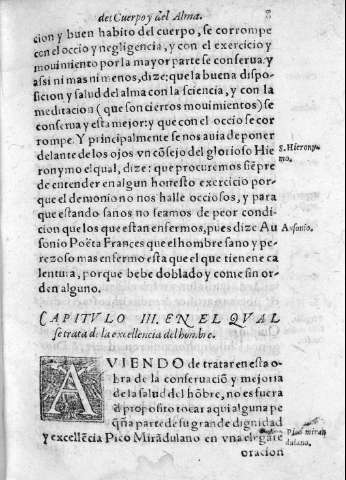 del Cuerpo y del Alma. 8
cion y buen habito del cuerpo, se corrompe
con el occio y negligencia, y con el exercicio y
mouimiento por la mayor parte se conserua. y
assi ni mas ni menos, dize: que la buena dispo-
sicion y salud del alma con la sciencia, y con la
meditacion (que son ciertos mouimientos) se
conserua y esta mejor: y que con el occio se cor
rompe. Y principalmente se nos auia de poner
delante de los ojos vn cõsejo del glorioso Hie
S. Hierony
ronymo el qual, dize: que procuremos siẽpre
mo.
de entender en algun honesto exercicio por-
que el demonio no nos halle occiosos, y para
que estando sanos no seamos de peor condi-
cion que los que estan enfermos, pues dize Au
Ausonio.
sonio Poëta Frances que el hombre sano y pe-
rezoso mas enfermo esta que el que tiene ca
lentura, porque bebe doblado y come sin or-
den alguno.
CAPITVLO III. EN EL QVAL
se trata de la excellencia del hombre.
AVIENDO de tratar en esta o-
bra de la conseruaciõ y mejoria
de la salud del hõbre, no es fuera
d proposito tocar aqui alguna pe
qña parte de su grande dignidad
y excellẽcia Pico Mirãdulano en vna elegãte
Pico miran
dulano.
oracion